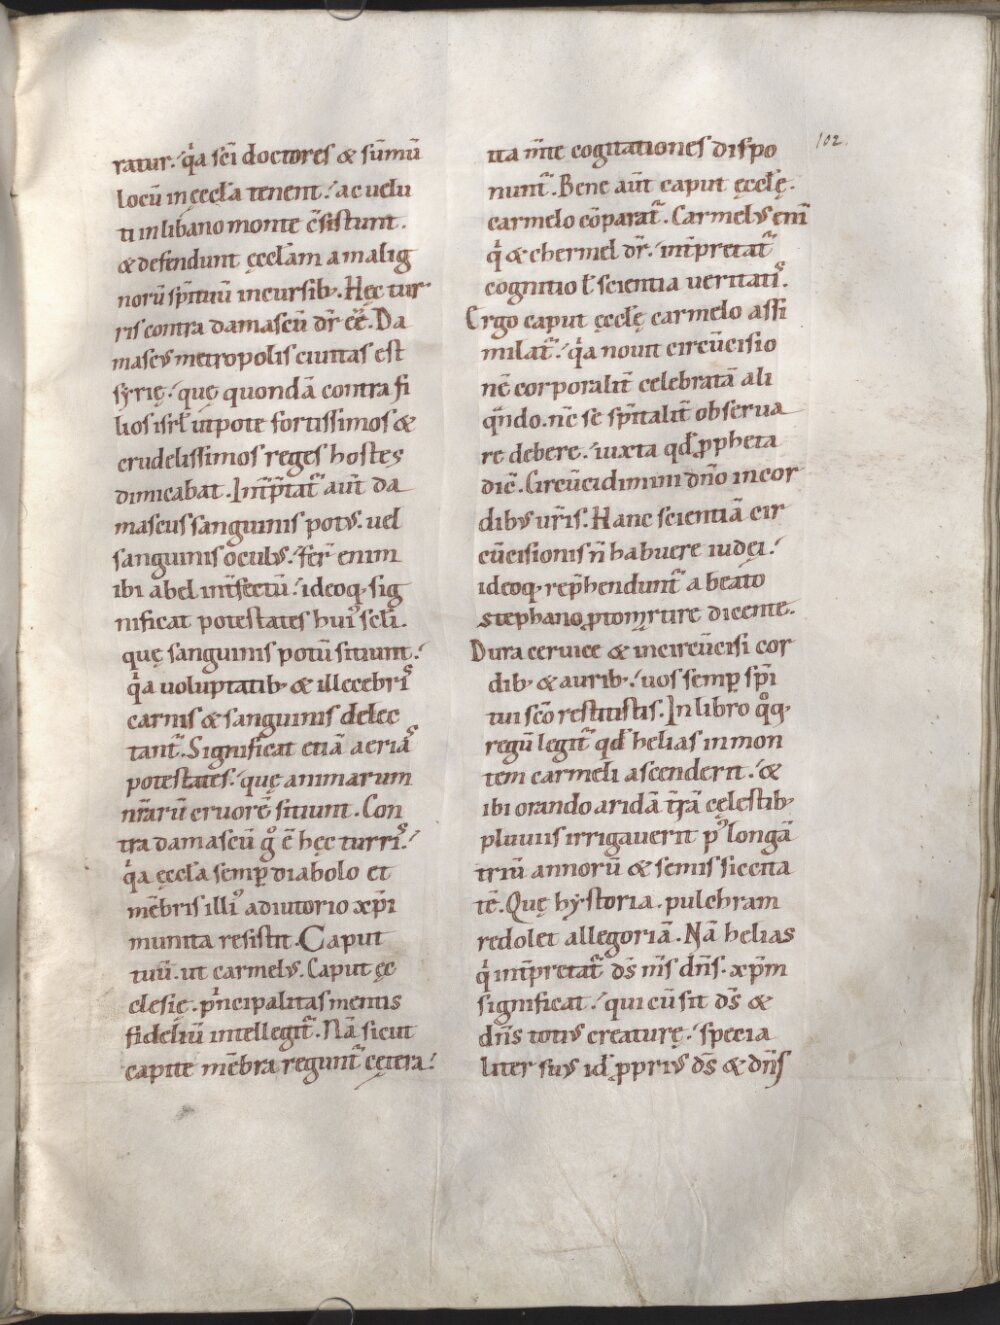 102.
ratur. q̇a sc̄i doctores & sūmū
locū in ęccl̄a tenent. ac uelu
ti in libano monte c̄sistunt.
& defendunt ęccl̄am a malig
norū sp̄ituū incursib; Hęc tur
ris contra damascū dr̄ ēē. Da
mascus metropolis ciuitas est
syrię. quę quondā contra fi
lios isrl̄ utpote fortissimos &
crudelissimos reges hostes
dimicabat. Int̄p̄tat᷑ aut̄ da
mascus sanguinis potus. uel
sanguinis oculus. fert̄ enim
ibi abel int̄fectū. ideoq; sig
nificat potestates hui᷒ scl̄i.
quę sanguinis potū sitiunt.
q̇a uoluptatib; & illecebris
carnis & sanguinis delec
tant᷑. Significat etiā aerias
potestates. quę animarum
nr̄arū cruorē sitiunt. Con
tra damascū g̊ ē hęc turris.
q̇a ęccl̄a semp̱ diabolo et
mēbris illi᷒ adiutorio xp̄i
munita resistit. Caput
tuū. ut carmelus. Caput ęc
clesię. p̓ncipalitas mentis
fideliū intellegit᷑. Nā sicut
capite mēbra regunt᷑ cętera.
ita m̄te cogitationes dispo
nunt᷑. Bene aut̄ caput ęccl̄ę.
carmelo cōparat᷑. Carmelus eni̅
q̇ & chermel dr̄. int̄pretat᷑
cognitio l̄ scientia ueritatis.
Ergo caput ęccl̄ę carmelo assi
milat᷑. q̇a nouit circūcisio
nē corporalit̄ celebratā ali
qn̄do. nc̄ se sp̄italit̄ obserua
re debere. iuxta qd̄ ꝓpheta
dic̄. Circūcidimini dn̄o in cor
dibus ur̄is. Hanc scientiā cir
cūcisionis n̄ habuere iudęi.
ideoq; rep̄hendunt᷑ a beato
stephano ꝓtomr̄tire dicente.
Dura ceruice & incircūcisi cor
dib; & aurib; uos semp̱ sp̄i
tui sc̄o restitistis. In libro q̊q;
regū legit᷑ qd̄ helias in mon
tem carmeli ascenderit. &
ibi orando aridā t̄rā cęlestib;
pluuiis irrigauerit p᷒ longā
triū annorū & semis siccita
tē. Quę hystoria. pulchram
redolet allegoriā. Nā helias
q̇ int̄pretat᷑ ds̄ m̄s dn̄s. xp̄m
significat. qui cū sit ds̄ &
dn̄s totius creaturę. specia
liter suus id ꝓprius ds̄ & dn̄s